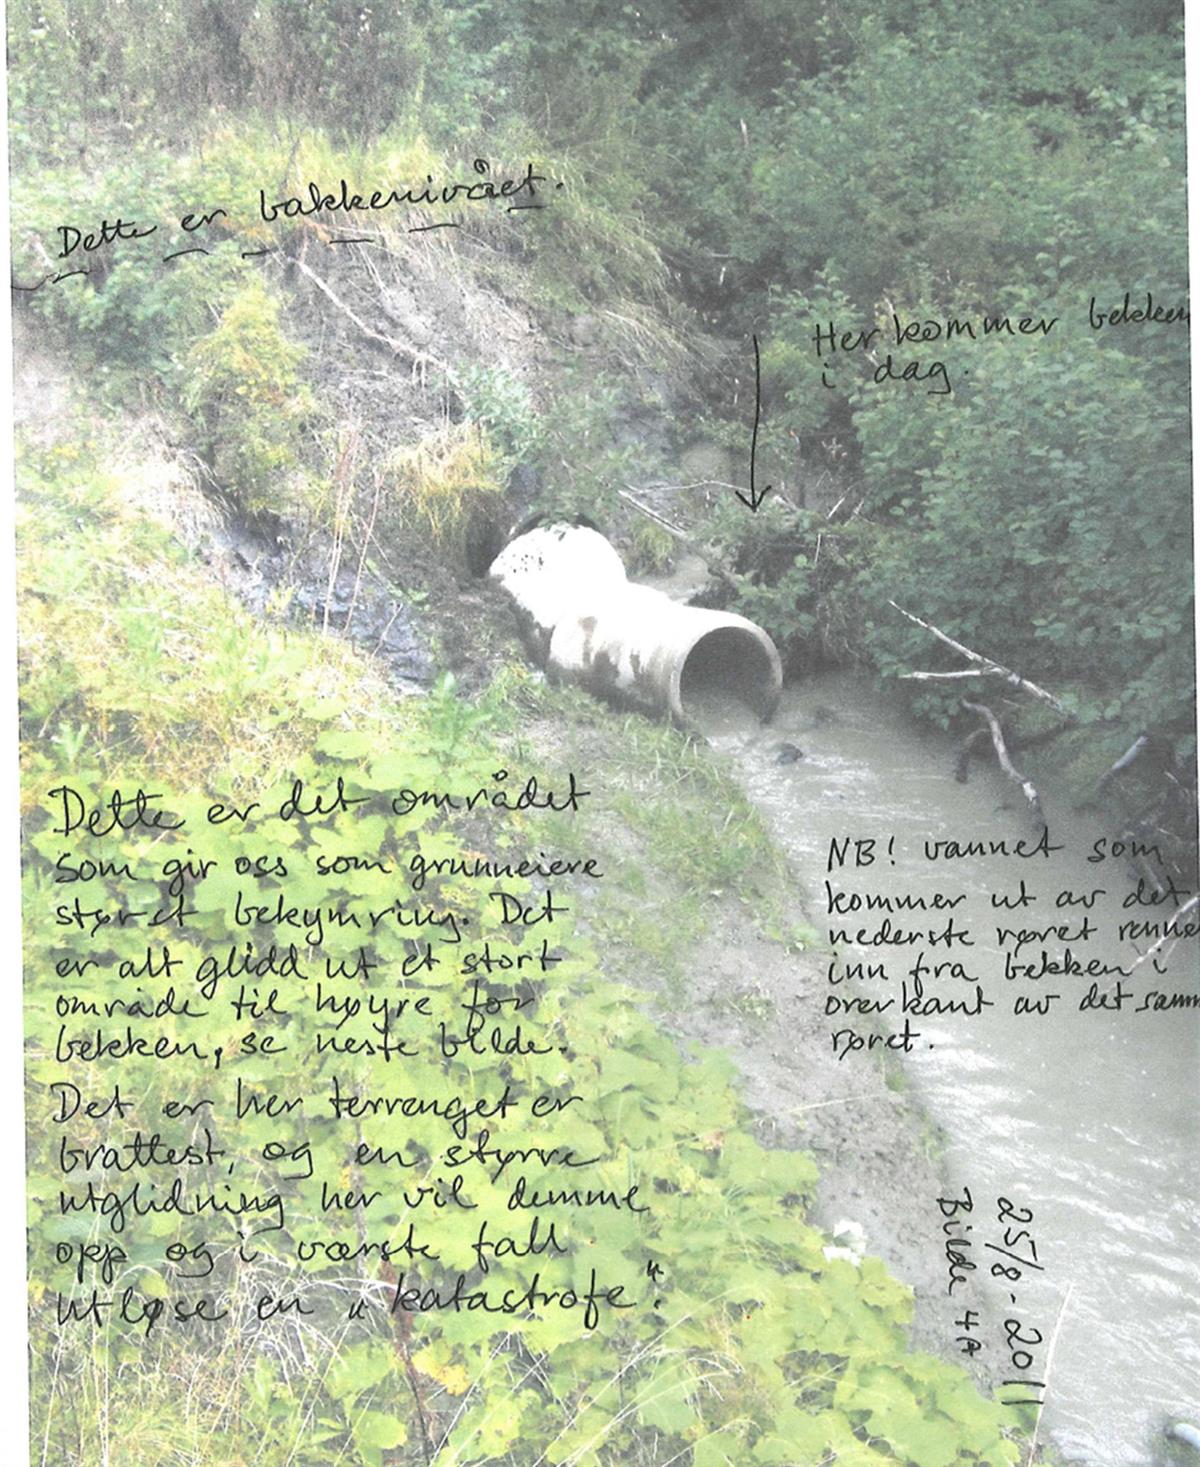 Dette er bakkenivået.
Her kommer bekken
i dag.
Dette er det området
som gir oss som grunneiere
størst bekymring. Det
er alt glidd ut et stort
område til høyre for
bekken, se neste bilde.
Det er her terrenget er
brattest, og en større
utglidning her vil demme
opp og i værste fall
utløse en "katastrofe".
NB! vannet som
kommer ut av det
nederste røret renne
inn fra bekken i
overkant av det samm
røret.
25/8-2011
Bilde 4A